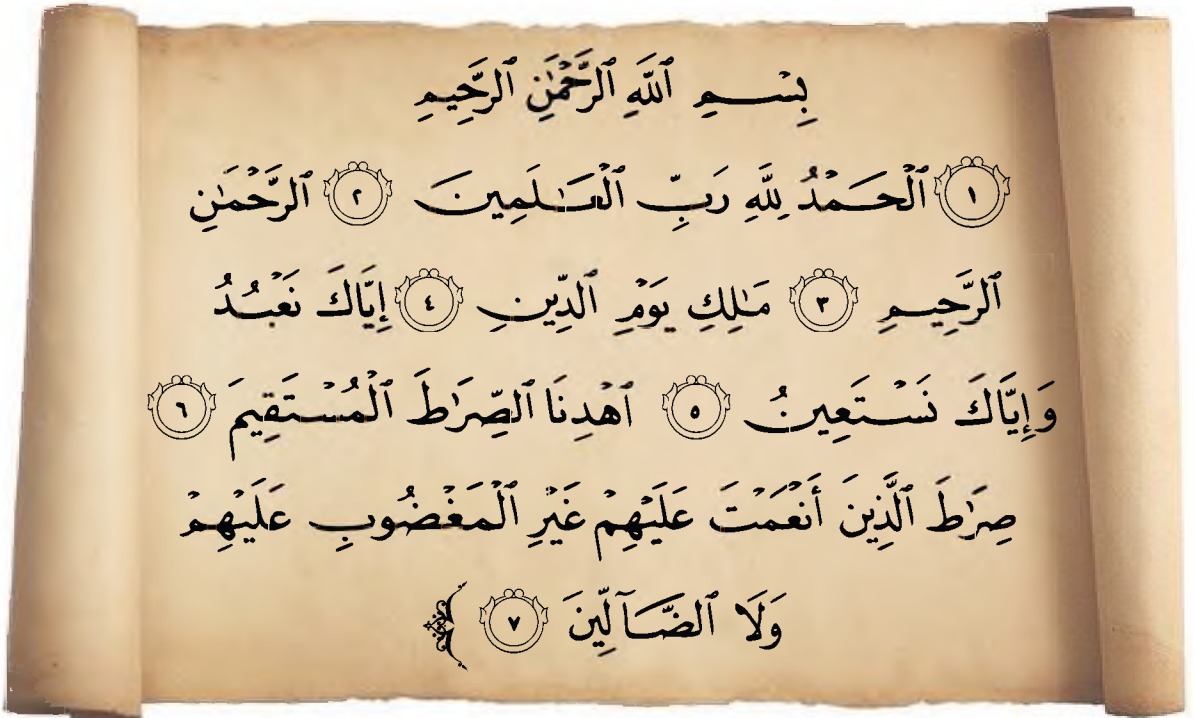 بِسْمِ ٱللَّهِ ٱلرَّحْمَٰنِ ٱلرَّحِيمِ
١ ٱلْحَمْدُ لِلَّهِ رَبِّ ٱلْعَٰلَمِينَ ٢ ٱلرَّحْمَٰنِ
ٱلرَّحِيمِ ٣ مَٰلِكِ يَوْمِ ٱلدِّينِ ٤ إِيَّاكَ نَعْبُدُ
وَإِيَّاكَ نَسْتَعِينُ ٥ ٱهْدِنَا ٱلصِّرَٰطَ ٱلْمُسْتَقِيمَ ٦
صِرَٰطَ ٱلَّذِينَ أَنْعَمْتَ عَلَيْهِمْ غَيْرِ ٱلْمَغْضُوبِ عَلَيْهِمْ
وَلَا ٱلضَّآلِّينَ ٧